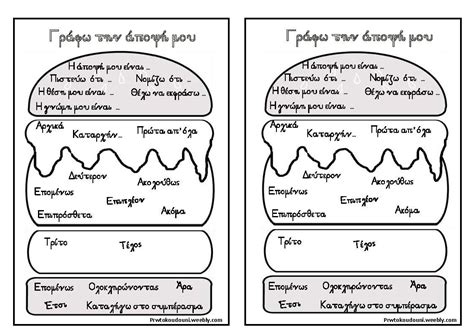 Γράφω την άποψή μου
Η άποψή μου είναι ...
Πιστεύω ότι ... Νομίζω ότι ...
Η θέση μου είναι ... Θέλω να εκφράσω ...
Η γνώμη μου είναι ...
Αρχικά Καταρχήν ... Πρώτα απ'όλα
Δεύτερον Ακολούθως
Επομένως Επιπλέον
Επιπρόσθετα Ακόμα
Τρίτο Τέλος
Επομένως Ολοκληρώνοντας Άρα
Έτσι Καταλήγω στο συμπέρασμα
Prwtokoudouni.weebly.com
Γράφω την άποψή μου
Η άποψή μου είναι ...
Πιστεύω ότι ... Νομίζω ότι ...
Η θέση μου είναι ... Θέλω να εκφράσω ...
Η γνώμη μου είναι ...
Αρχικά Καταρχήν ... Πρώτα απ'όλα
Δεύτερον Ακολούθως
Επομένως Επιπλέον
Επιπρόσθετα Ακόμα
Τρίτο Τέλος
Επομένως Ολοκληρώνοντας Άρα
Έτσι Καταλήγω στο συμπέρασμα
Prwtokoudouni.weebly.com